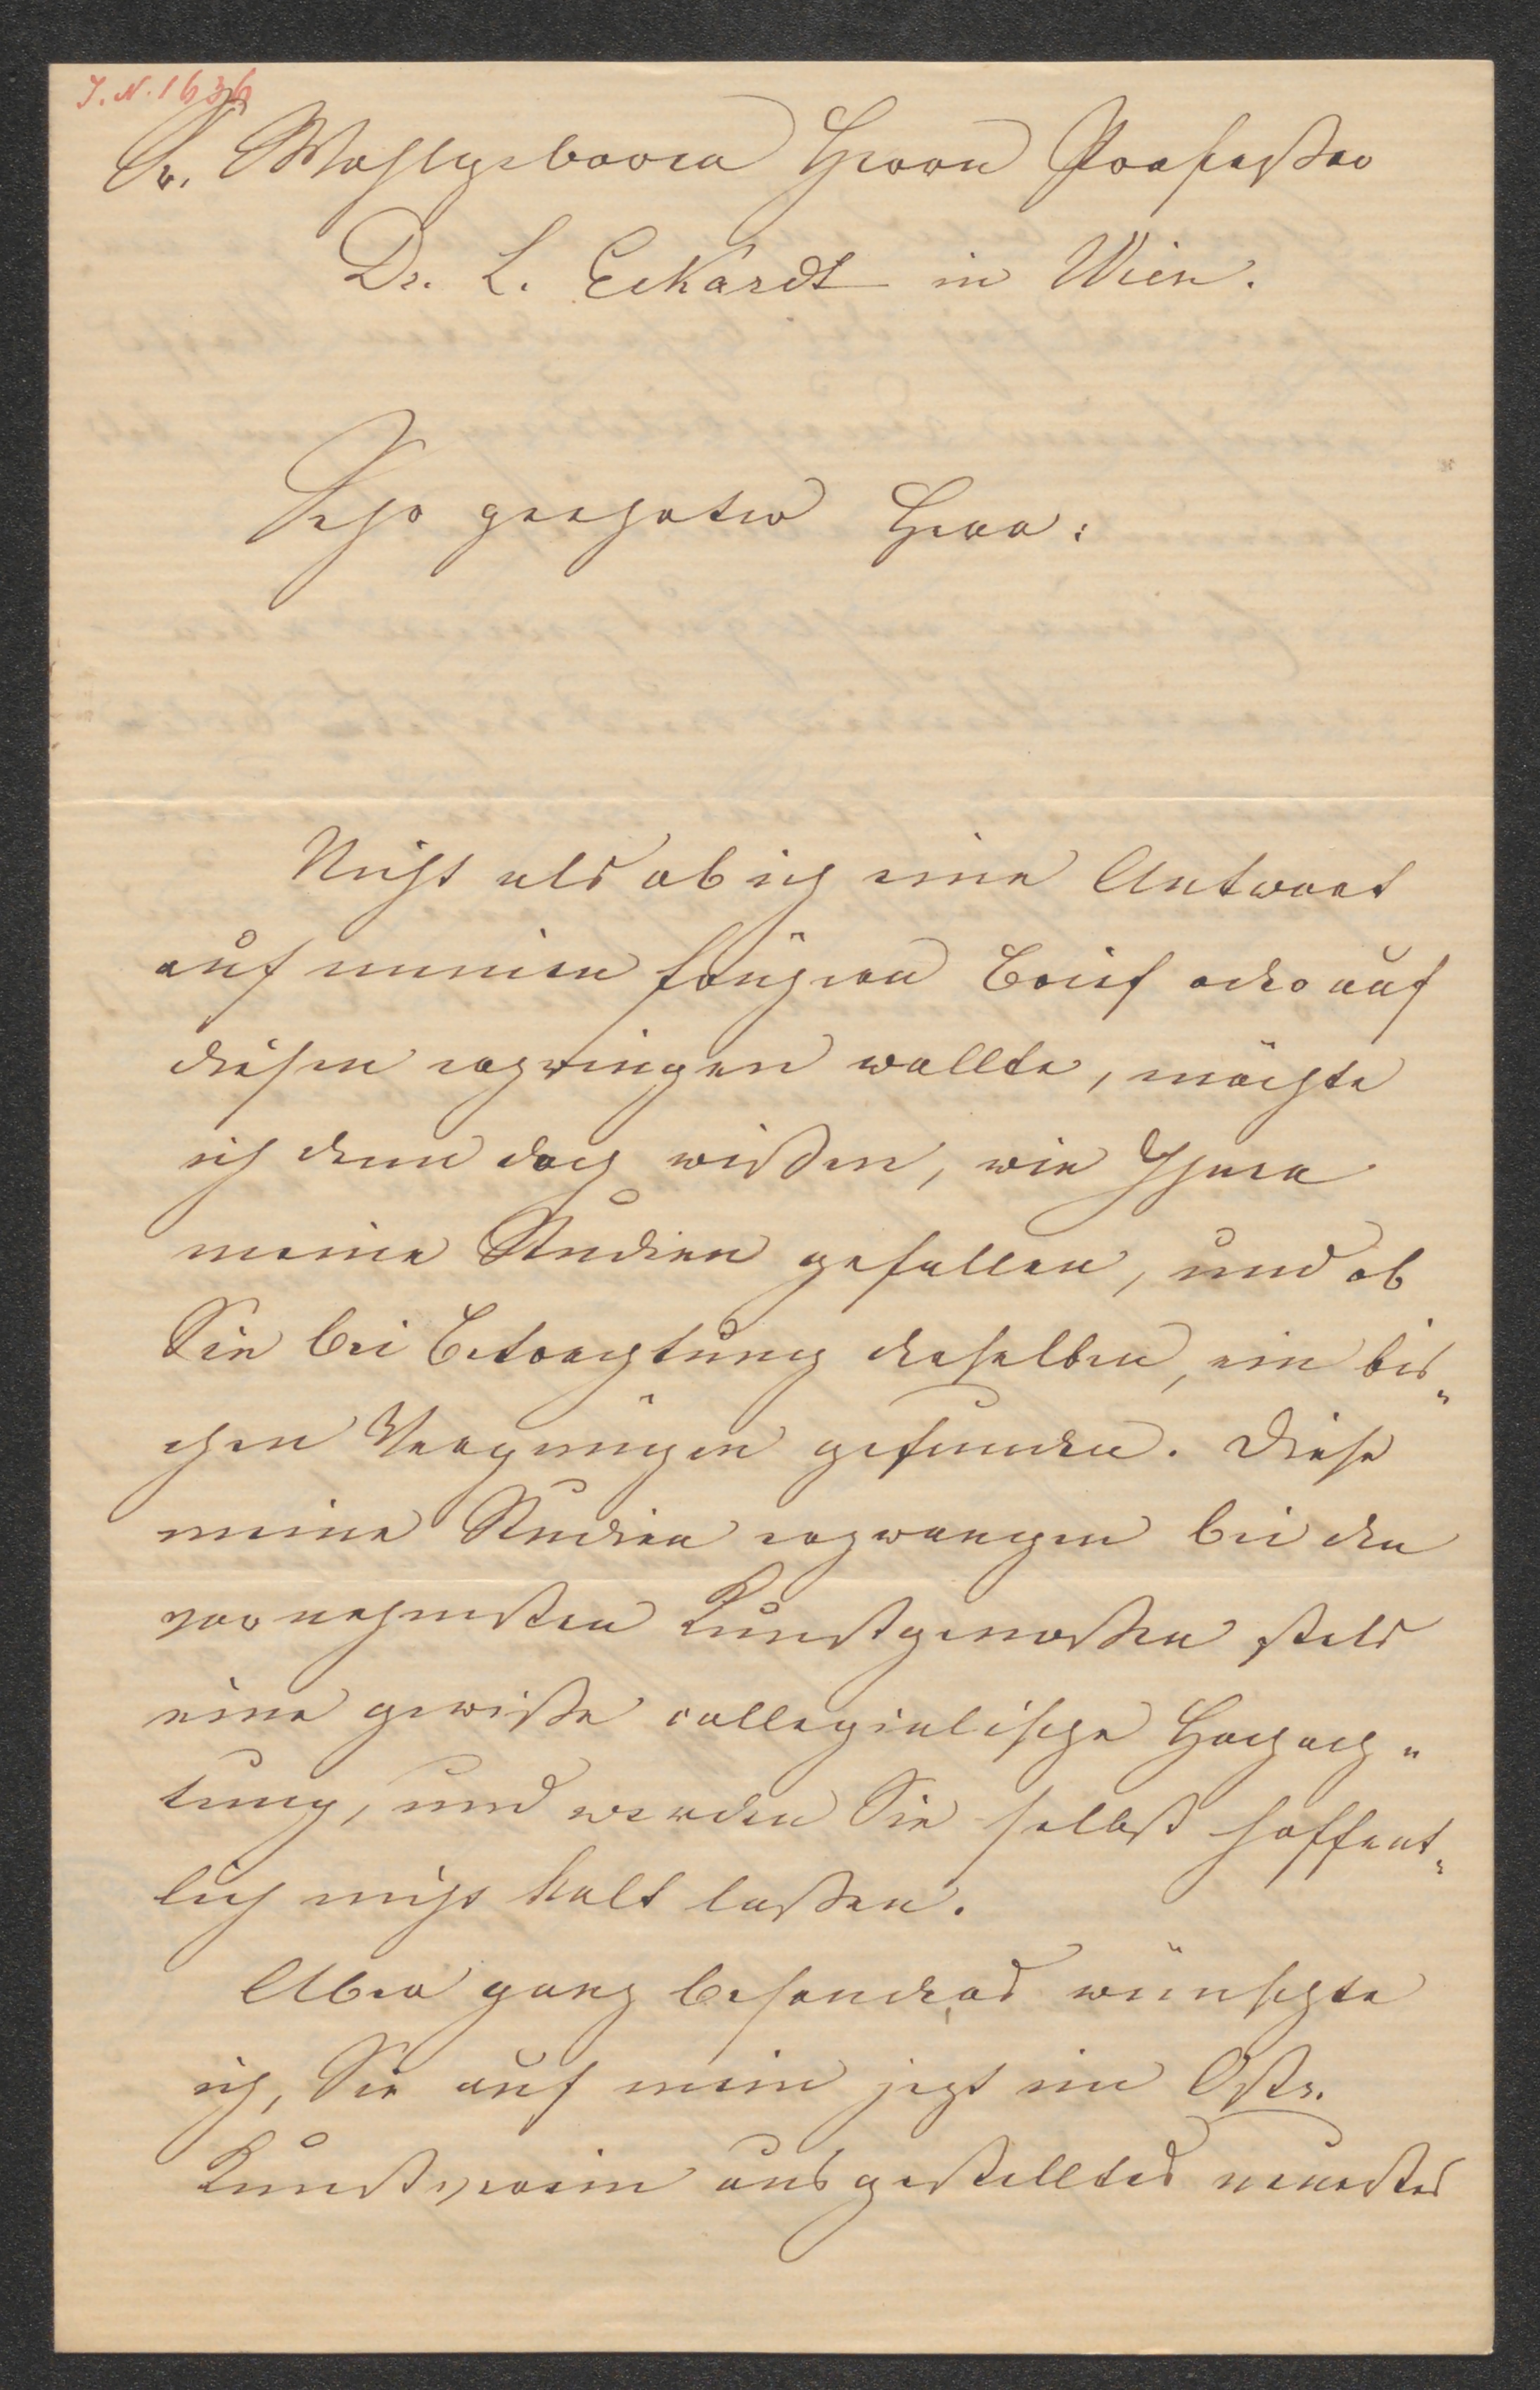 J. N. 1636
Sr. Wohlgeboren Herrn Professor
Dr. L. Eckardt in Wien.
Sehr geehrter Herr:
Nicht als ob ich eine Antwort
auf meinen früheren Brief oder auf
diesen erzwingen wollte, möchte
ich denn doch wißen, wie Ihnen
meine Studien gefallen, und ob
Sie bei Betrachtung derselben, ein bis„
chen Vergnügen gefunden. Diese
meine Studien erzwangen bei den
vornehmsten Kunstgenoßen stets
eine gewiße collegialische Hochach„
tung, und werden Sie selbst hoffent„
lich nicht kalt laßen.
Aber ganz besonders wünschte
ich, Sie auf mein jezt im Östr.
Kunstverein ausgestelltes neuestes